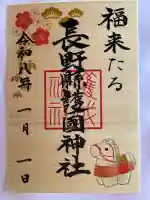 福来たる
長野縣護國神社
令和八年
一月一日